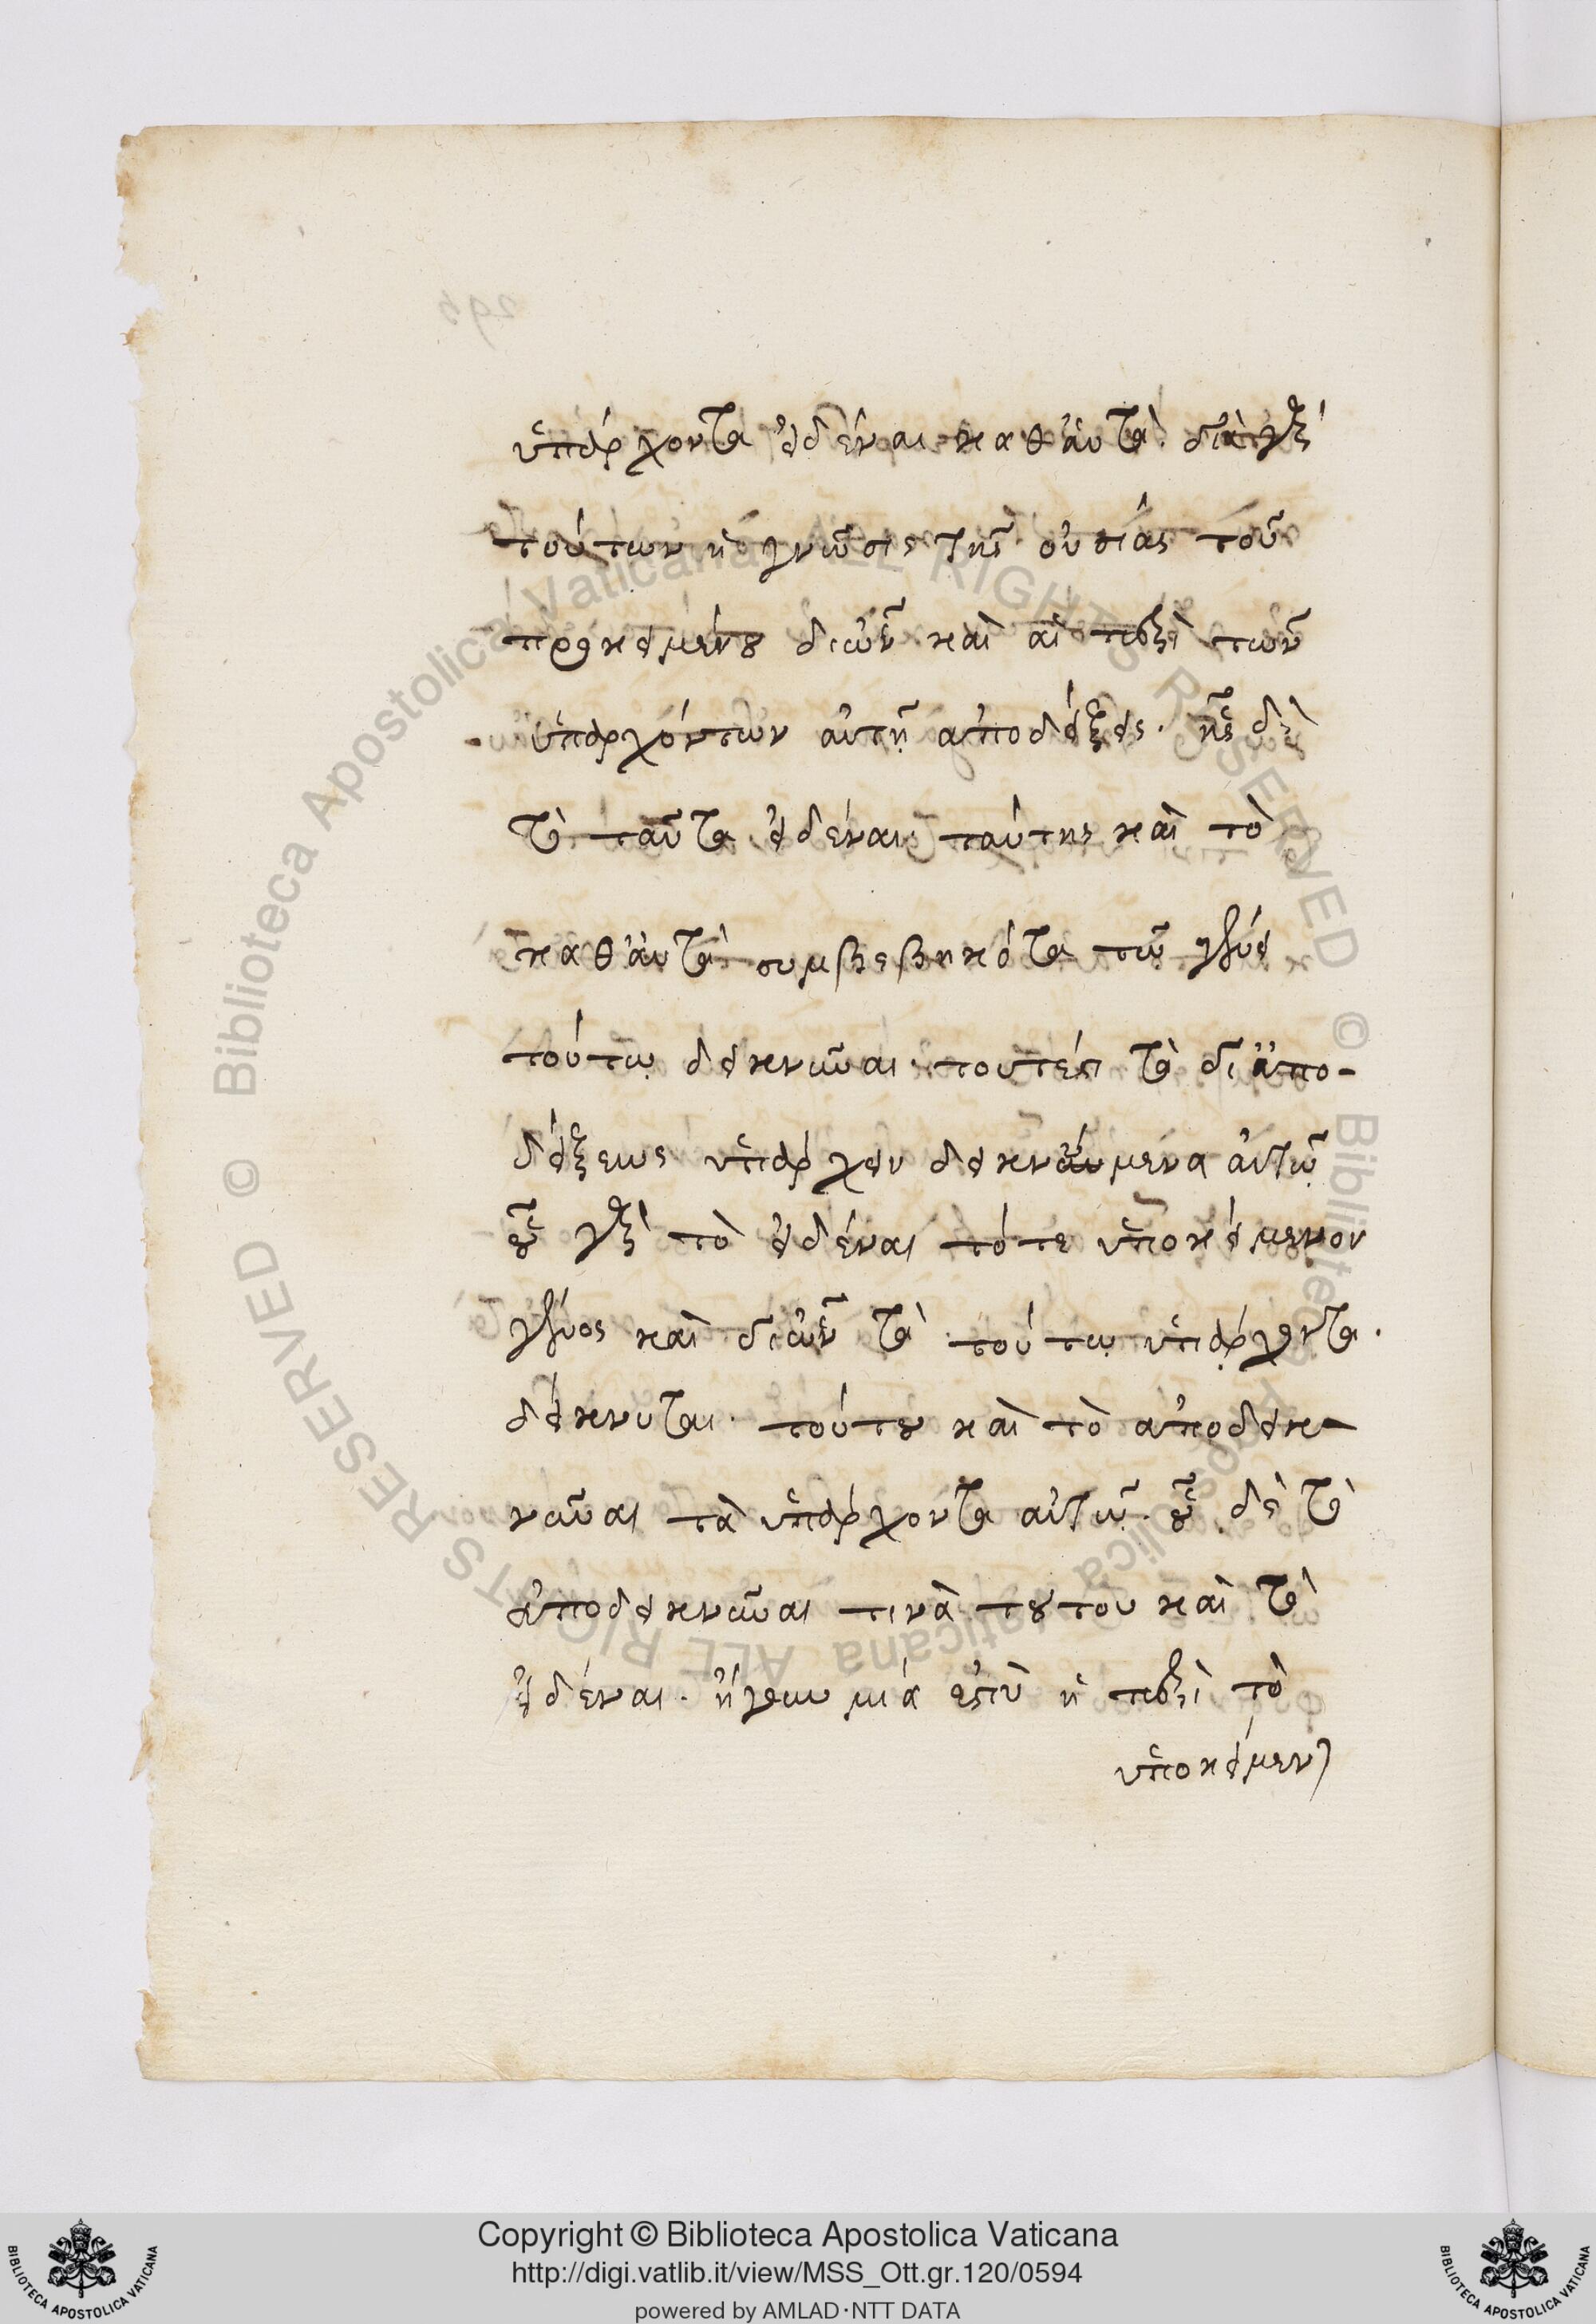 ὑπάρχοντα εἰδέναι καθ' αὑτὰ. διὰ γὰρ
τούτων ἡ γνῶσις τῆς οὐσίας τοῦ
προκειμένου δι' ὧν καὶ αἱ περὶ τῶν
ὑπαρχόντων αὐτῇ ἀποδείξεις. ἧς δὲ
τὸ ταῦτα εἰδέναι ταύτης καὶ τὸ
καθ' αὑτὰ συμβεβηκότα τῷ γένει
τούτῳ δεικνῦναι. τουτέστι τὰ δι' ἀπο-
δείξεως ὑπάρχειν δεικνύμενα αὐτῷ
οὗ γὰρ τὸ εἰδέναι τό τε ὑποκείμενον
γένος καὶ δι' ὧν τὰ τούτῳ ὑπάρχοντα.
δείκνυται. τούτου καὶ τὸ ἀποδεικ-
νῦναι τὰ ὑπάρχοντα αὐτῷ. οὗ δὲ τὸ
ἀποδεικνῦναι τινὰ τούτου καὶ τὸ
εἰδέναι. ἤγουν μιά ἐστὶν ἡ περὶ τὸ
ὑποκείμενον
Copyright © Biblioteca Apostolica Vaticana
http://digi.vatlib.it/view/MSS_Ott.gr.120/0594
powered by AMLAD·NTT DATA
BIBLIOTECA APOSTOLICA VATICANA
BIBLIOTECA APOSTOLICA VATICANA
© Biblioteca Apostolica Vaticana ALL RIGHTS RESERVED © Biblioteca Apostolica Vaticana ALL RIGHTS RESERVED